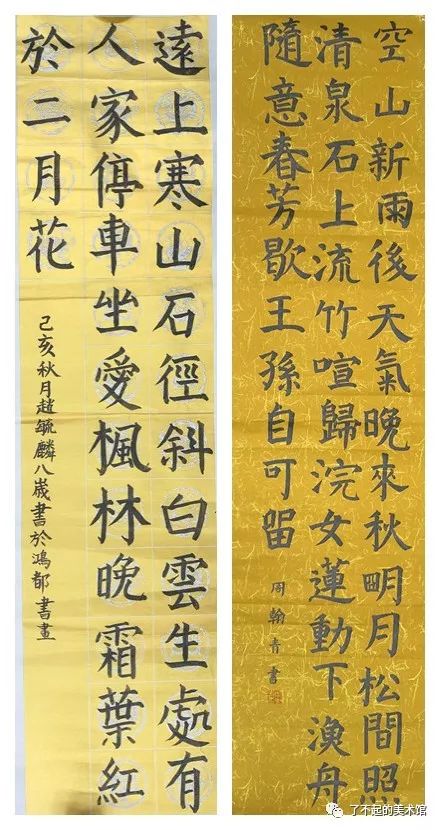 遠上寒山石徑斜白雲生處有
人家停車坐愛楓林晚霜葉紅
於二月花
己亥秋月趙毓麟八歲書於鴻都書畫
空山新雨後天氣晚來秋明月松間照
清泉石上流竹喧歸浣女蓮動下漁舟
隨意春芳歇王孫自可留
周翰青書
了不起的美术馆